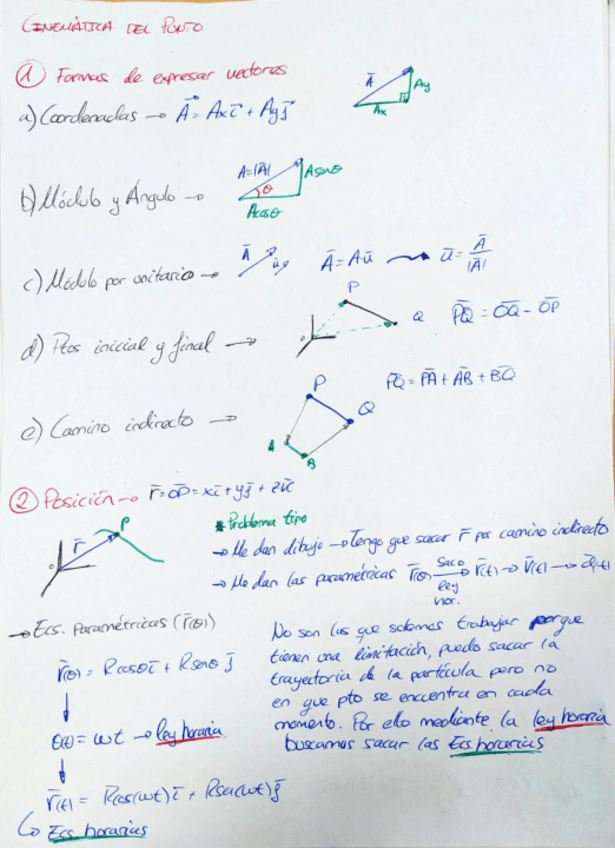 CINEMÁTICA DEL PUNTO
① Formas de expresar vectores
a) Coordenadas → A⃗ = Axi⃗ + Ayj⃗
Ā Ay
Ax
b) Módulo y Ángulo →
A=|Ā| Asenθ
θ
Acosθ
c) Módulo por unitario → Ā ū Ā = Aū ⟶ ū = Ā/|Ā|
d) Ptos inicial y final → P Q P̄Q̄ = ŌQ̄ - ŌP̄
e) Camino indirecto → P Q A B P̄Q̄ = P̄Ā + ĀB̄ + B̄Q̄
② Posición → r̄ = ŌP̄ = xī + yj̄ + zk̄
r̄ P
* Problema tipo
→ Me dan dibujo → Tengo que sacar r̄ por camino indirecto
→ Me dan las paramétricas r̄(θ) Saco ley hor. → r̄(t) → v̄(t) → ā(t)
→ Ecs. Paramétricas (r̄(θ))
r̄(θ) = Rcosθī + Rsenθ j̄
↓
θ(t) = ωt → ley horaria
↓
r̄(t) = Rcos(ωt)ī + Rsen(ωt)j̄
↳ Ecs horarias
No son las que solemos trabajar porque
tienen una limitación, puedo sacar la
trayectoria de la partícula pero no
en que pto se encuentra en cada
momento. Por ello mediante la ley horaria
buscamos sacar las Ecs horarias